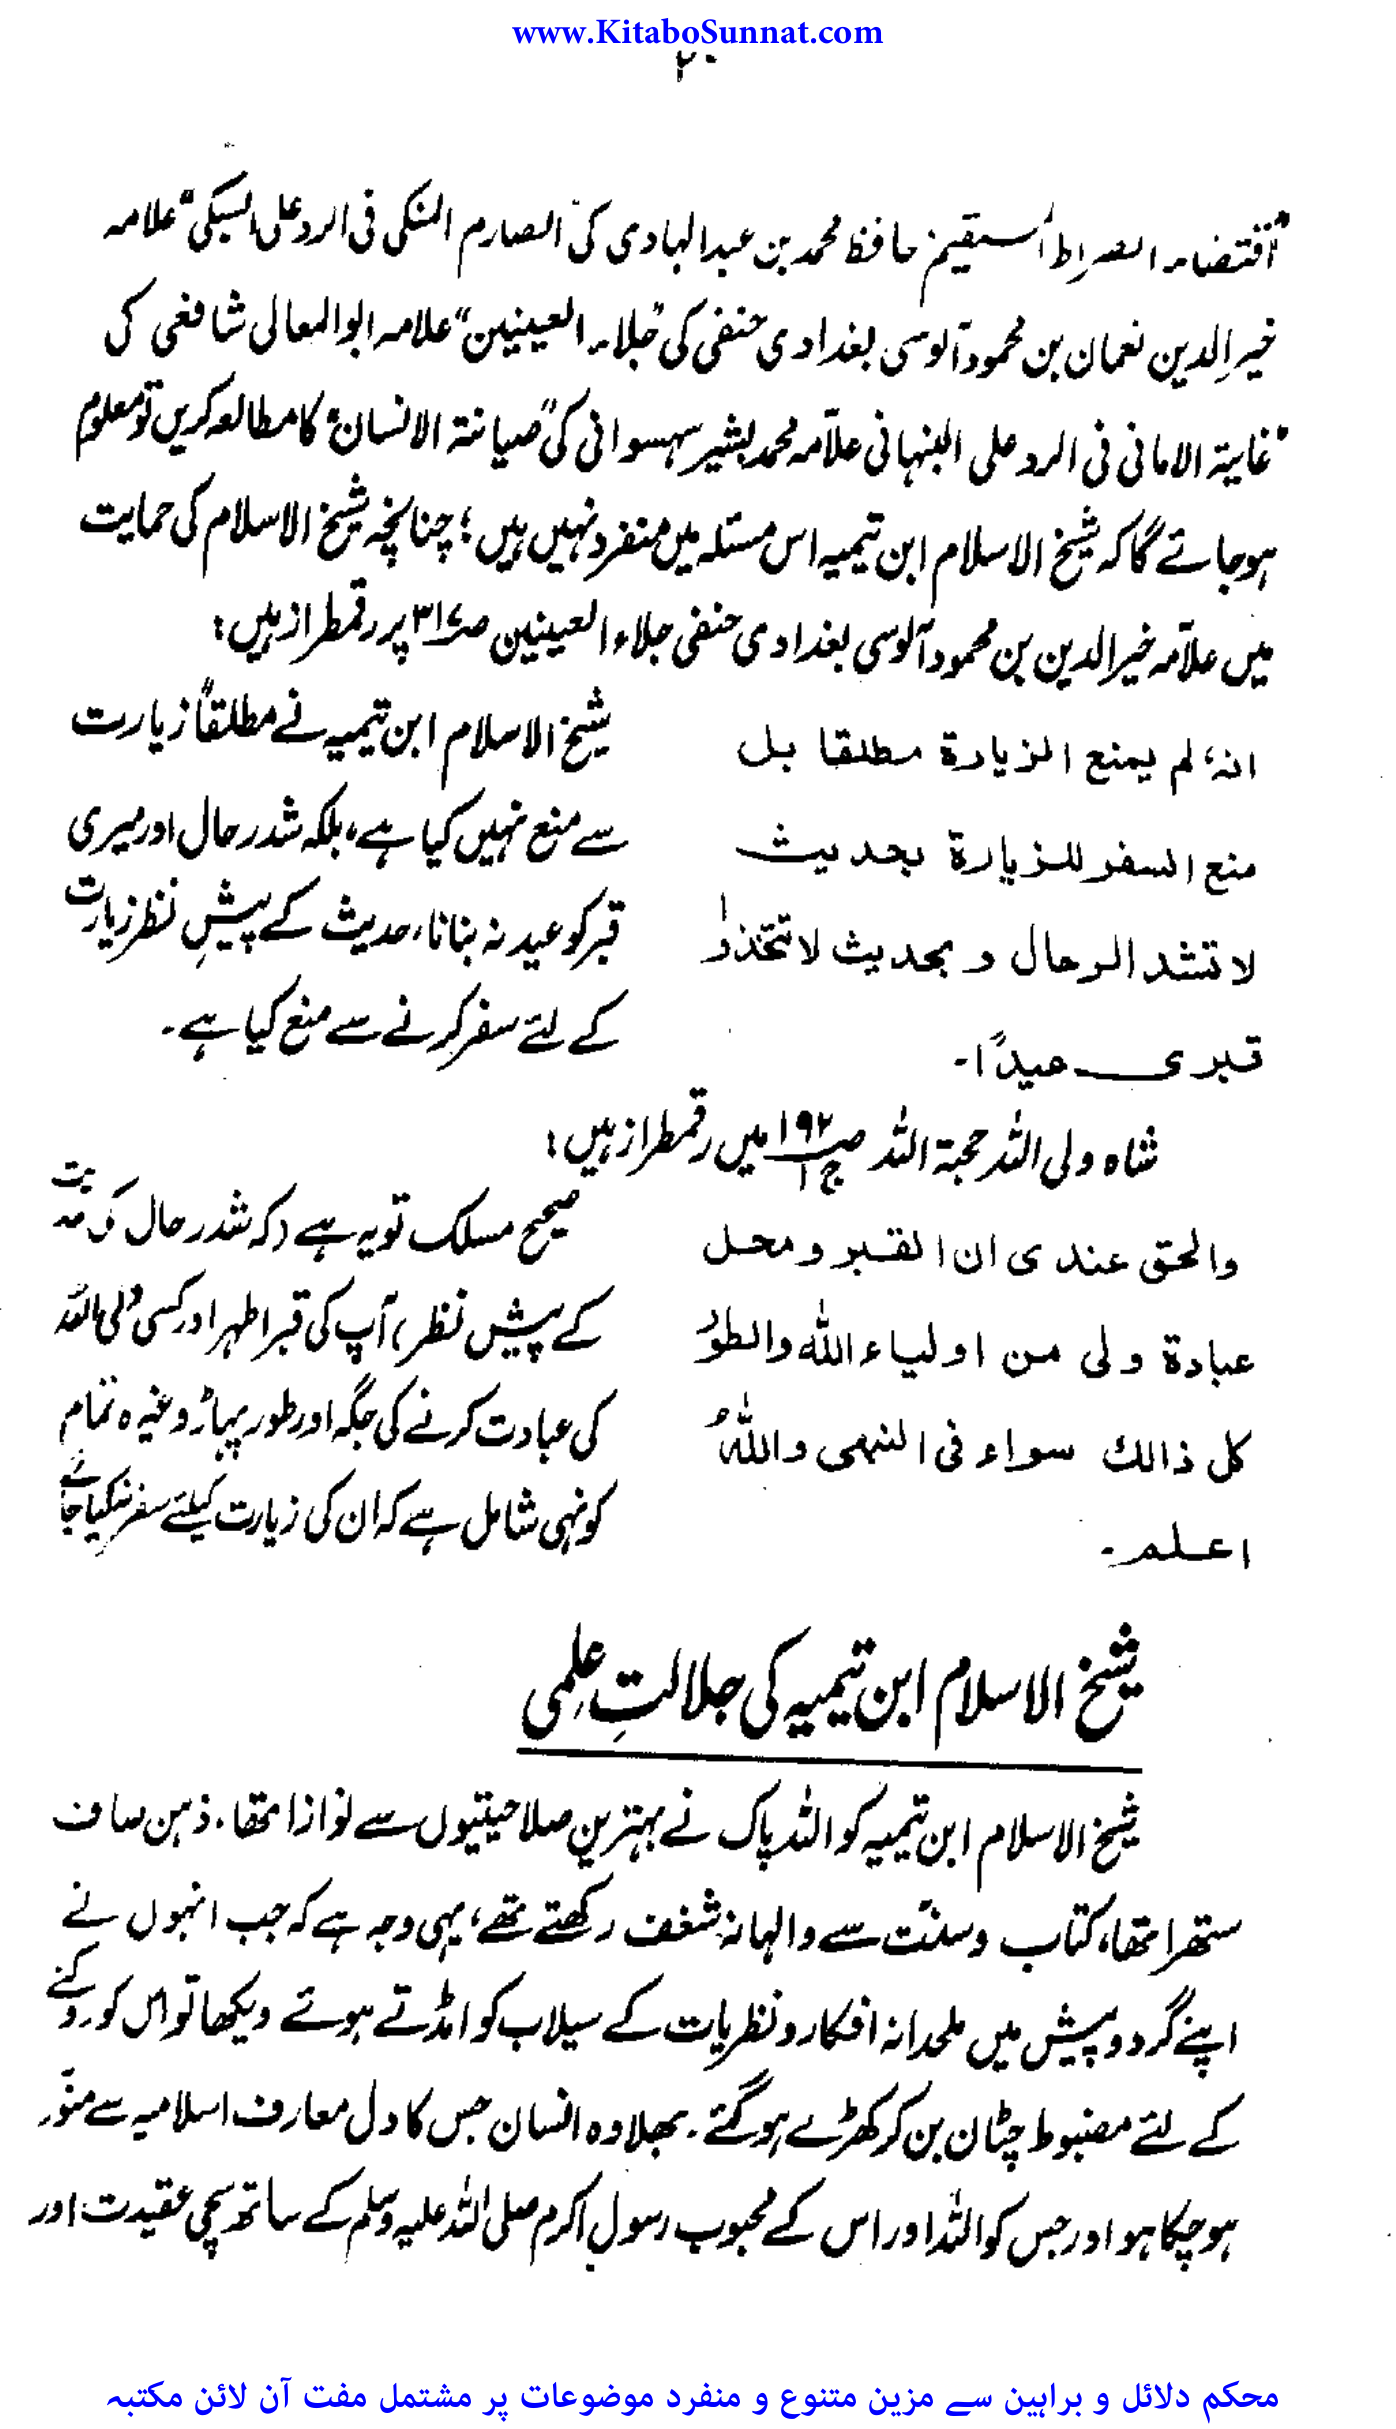 www.KitaboSunnat.com
۲۰
"اقتضاء الصراط المستقیم" حافظ محمد بن عبدالہادی کی "الصارم المنکی فی الرد علی السبکی" علامہ
خیر الدین نعمان بن محمود آلوسی بغدادی حنفی کی "جلاء العینین" علامہ ابوالمعالی شافعی کی
"غایۃ الامانی فی الرد علی النبہانی علّامہ محمد بشیر سہسوانی کی "صیانۃ الانسان" کا مطالعہ کریں تو معلوم
ہوجائے گا کہ شیخ الاسلام ابن تیمیہ اس مسئلہ میں منفرد نہیں ہیں؛ چنانچہ شیخ الاسلام کی حمایت
میں علّامہ خیر الدین بن محمود آلوسی بغدادی حنفی جلاء العینین ص۳۱۷ پر رقمطراز ہیں:
انہ لم یمنع الزیارۃ مطلقا بل
منع السفر للزیارۃ بحدیث
لا تشد الرحال و بحدیث لا تتخذوا
قبری عیدًا۔
شیخ الاسلام ابن تیمیہ نے مطلقاً زیارت
سے منع نہیں کیا ہے، بلکہ شدر حال اور میری
قبر کو عید نہ بنانا، حدیث کے پیشِ نظر زیارت
کے لئے سفر کرنے سے منع کیا ہے۔
شاہ ولی اللہ حجۃ اللہ ص۱۹۲ ج۱ میں رقمطراز ہیں:
والحق عندی ان القبر و محل
عبادۃ ولی من اولیاء اللہ والطور
کل ذالك سواء فی النہی واللہُ
اعلم۔
صحیح مسلک تو یہ ہے (کہ شدر حال کی حدیث
کے پیش نظر) آپ کی قبر اطہر اور کسی ولی اللہ
کی عبادت کرنے کی جگہ اور طور پہاڑ وغیرہ تمام
کو نہی شامل ہے کہ ان کی زیارت کیلئے سفر نہ کیا جائے
شیخ الاسلام ابن تیمیہ کی جلالتِ علمی
شیخ الاسلام ابن تیمیہ کو اللہ پاک نے بہترین صلاحیتیوں سے نوازا تھا۔ ذہن صاف
ستھرا تھا، کتاب و سنّت سے والہانہ شغف رکھتے تھے، یہی وجہ ہے کہ جب انہوں نے
اپنے گرد و پیش میں ملحدانہ افکار و نظریات کے سیلاب کو امڈتے ہوئے دیکھا تو اس کو روکنے
کے لئے مضبوط چٹان بن کر کھڑے ہوگئے۔ بھلا وہ انسان جس کا دل معارف اسلامیہ سے منوّر
ہوچکا ہو اور جس کو اللہ اور اس کے محبوب رسولِ اکرم صلی اللہ علیہ وسلم کے ساتھ سچی عقیدت اور
محکم دلائل و براہین سے مزین متنوع و منفرد موضوعات پر مشتمل مفت آن لائن مکتبہ